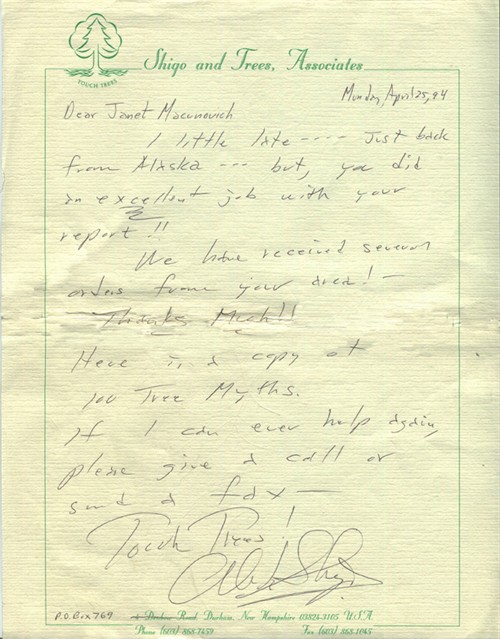 TOUCH TREES
Shigo and Trees, Associates
Monday, April 25, 94
Dear Janet Macunovich
A little late ---- Just back
from Alaska --- but, you did
an excellent job with your
report!!
We have received several
orders from your area! —
Thanks Much!!
Here is a copy of
100 Tree Myths.
If I can ever help again,
please give a call or
send a fax —
Touch Trees!
Alex Shigo
P.O. Box 769 Road Durham, New Hampshire 03824-3105 USA
Phone (603) 868-7459 Fax (603) 868-1045